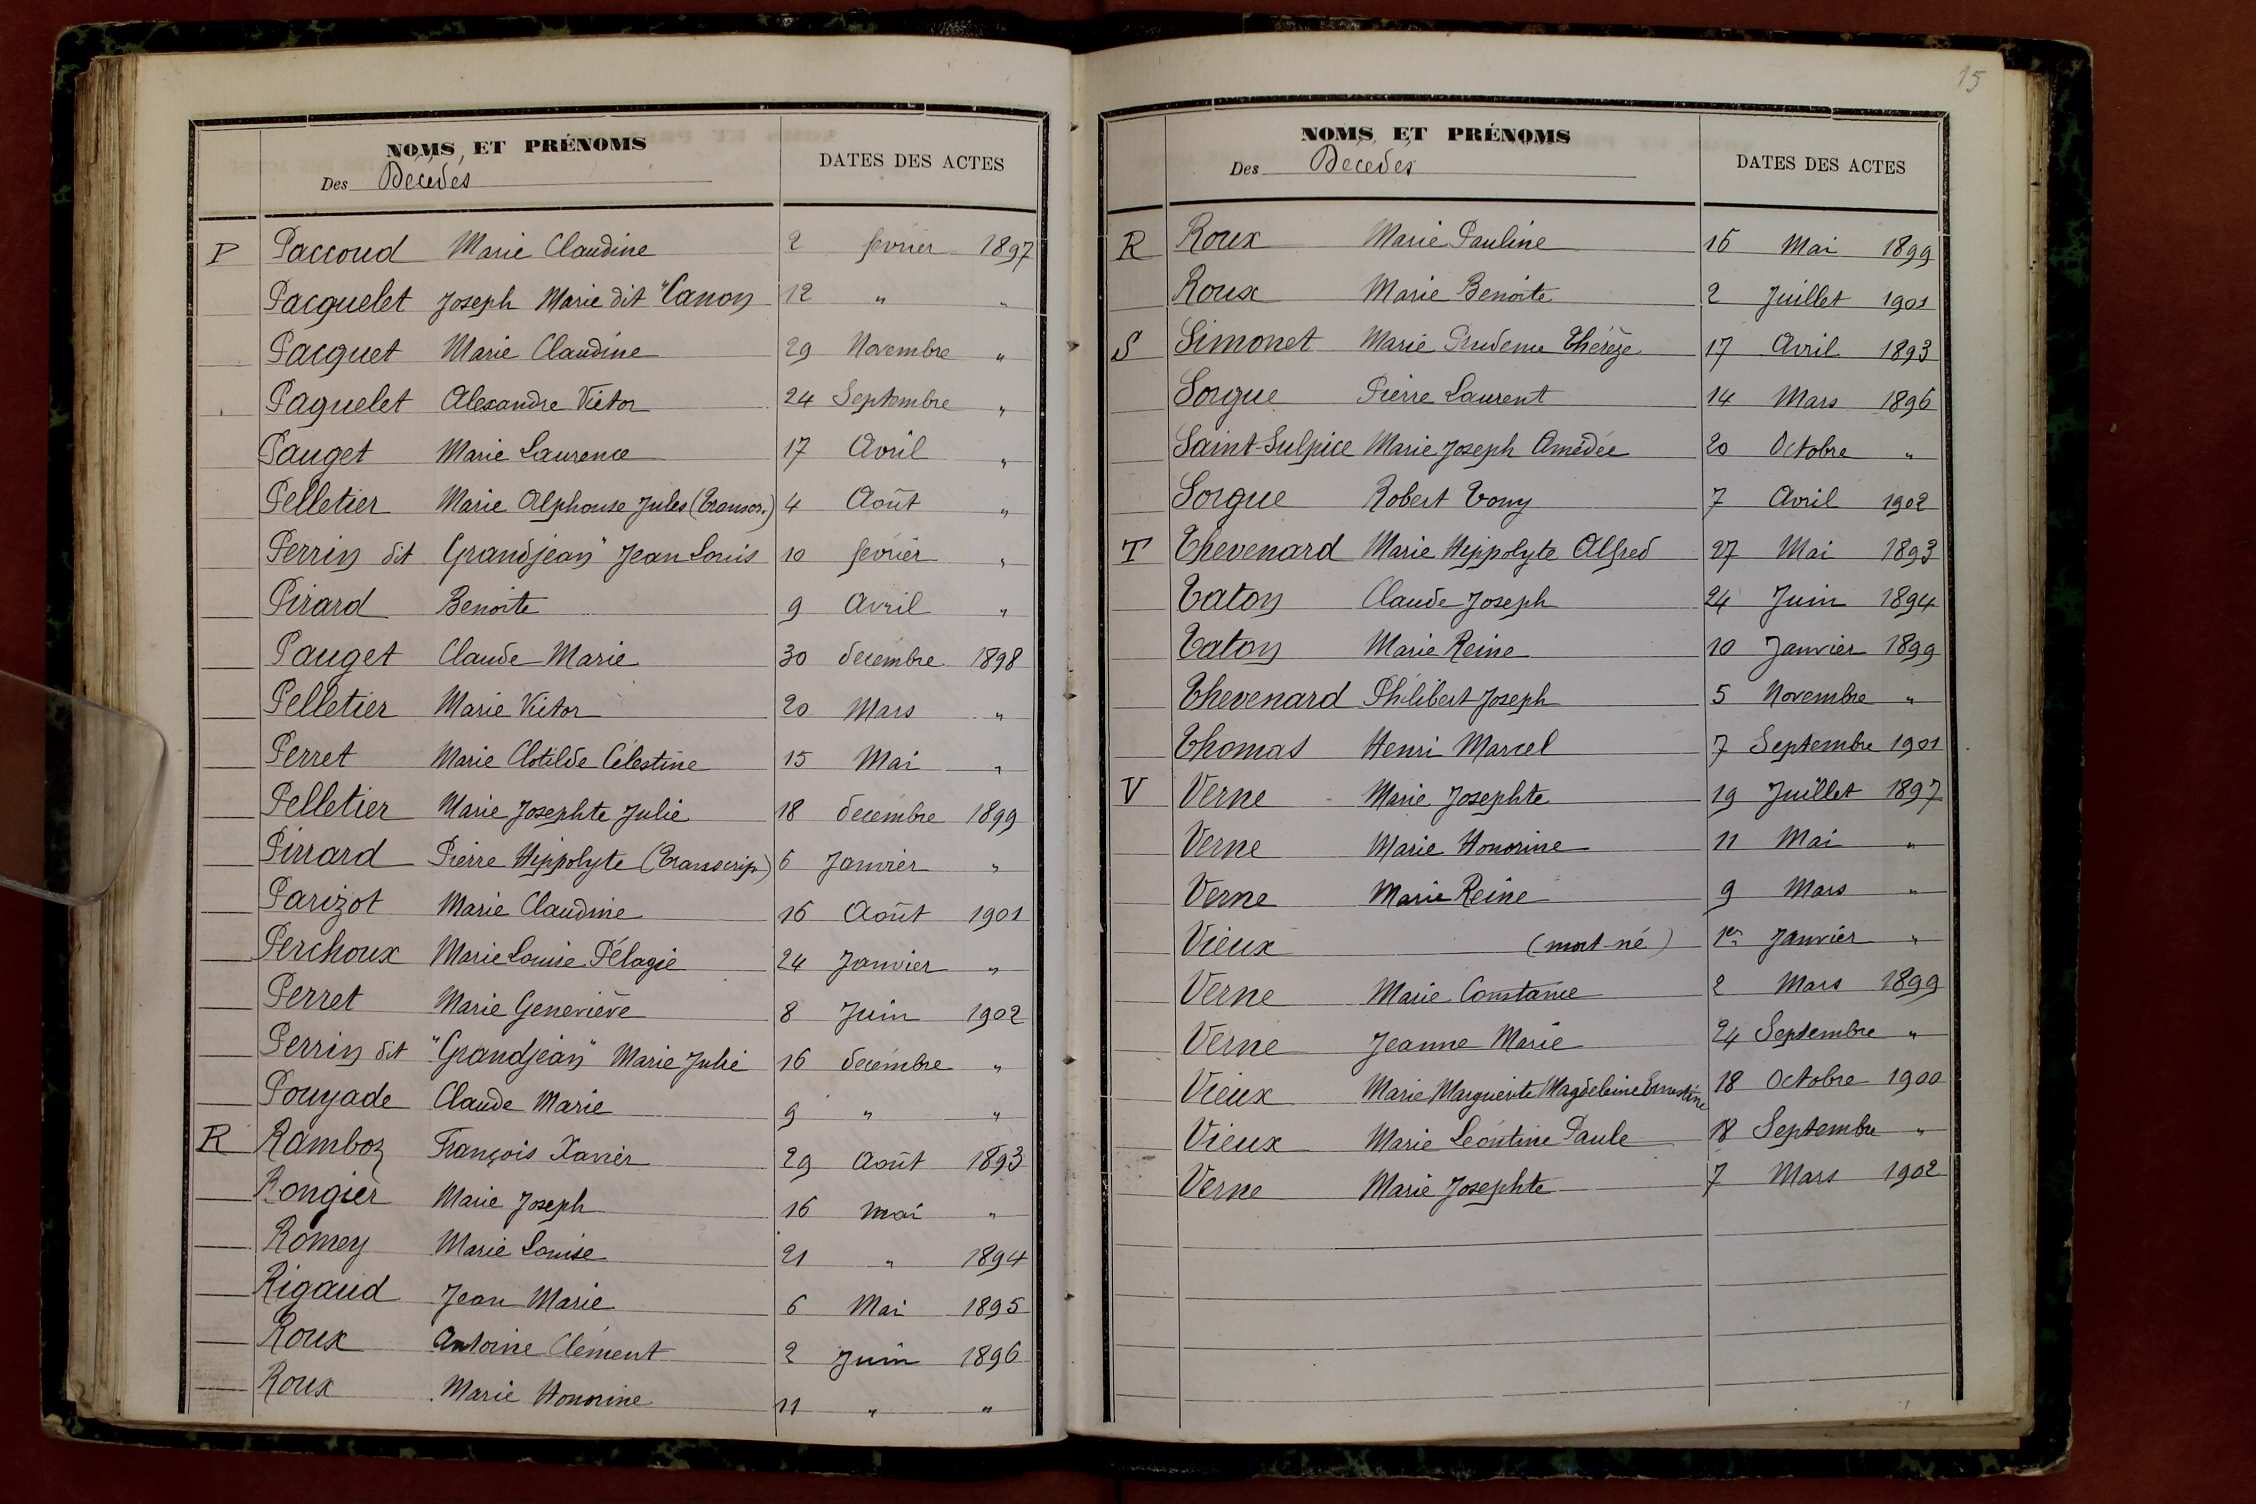 NOMS ET PRÉNOMS
Des Décédés
DATES DES ACTES
P Paccoud Marie Claudine 2 février 1897
Pacquelet Joseph Marie dit "Canon 12 " "
Pacquet Marie Claudine 29 Novembre "
Paquelet Alexandre Victor 24 Septembre "
Pauget Marie Laurence 17 Avril "
Pelletier Marie Alphonse Jules (Transcr.) 4 Août "
Perrin dit Grandjean" Jean Louis 10 février "
Pirard Benoite 9 Avril "
Pauget Claude Marie 30 décembre 1898
Pelletier Marie Victor 20 Mars "
Perret Marie Clotilde Célestine 15 Mai "
Pelletier Marie Josephte Julie 18 décembre 1899
Pirrard Pierre Hippolyte (Transcrip) 6 Janvier "
Parizot Marie Claudine 16 Août 1901
Perchoux Marie Louise Pélagie 24 Janvier "
Perret Marie Geneviève 8 Juin 1902
Perrin dit "Grandjean" Marie Julie 16 décembre "
Pouyade Claude Marie 9 " "
R Ramboz François Xavier 29 Août 1893
Rongier Marie Joseph 16 mai "
Romey Marie Louise 21 " 1894
Rigaud Jean Marie 6 Mai 1895
Roux Antoine Clément 2 Juin 1896
Roux Marie Honorine 11 " "
15
NOMS ET PRÉNOMS
Des Décédés
DATES DES ACTES
R Roux Marie Pauline 16 Mai 1899
Roux Marie Benoite 2 Juillet 1901
S Simonet Marie Prudence Thérèze 17 Avril 1893
Sorgue Pierre Laurent 14 Mars 1896
Saint-Sulpice Marie Joseph Amédée 20 Octobre "
Sorgue Robert Tony 7 Avril 1902
T Thevenard Marie Hippolyte Alfred 27 Mai 1893
Taton Claude Joseph 24 Juin 1894
Taton Marie Reine 10 Janvier 1899
Thevenard Philibert Joseph 5 Novembre "
Thomas Henri Marcel 7 Septembre 1901
V Verne Marie Josephte 19 Juillet 1897
Verne Marie Honorine 11 Mai "
Verne Marie Reine 9 Mars "
Vieux (mort-né) 1er Janvier "
Verne Marie Constance 2 Mars 1899
Verne Jeanne Marie 24 Septembre "
Vieux Marie Marguerite Magdeleine Ernestine 18 Octobre 1900
Vieux Marie Léontine Paule 18 Septembre "
Verne Marie Josephte 7 Mars 1902